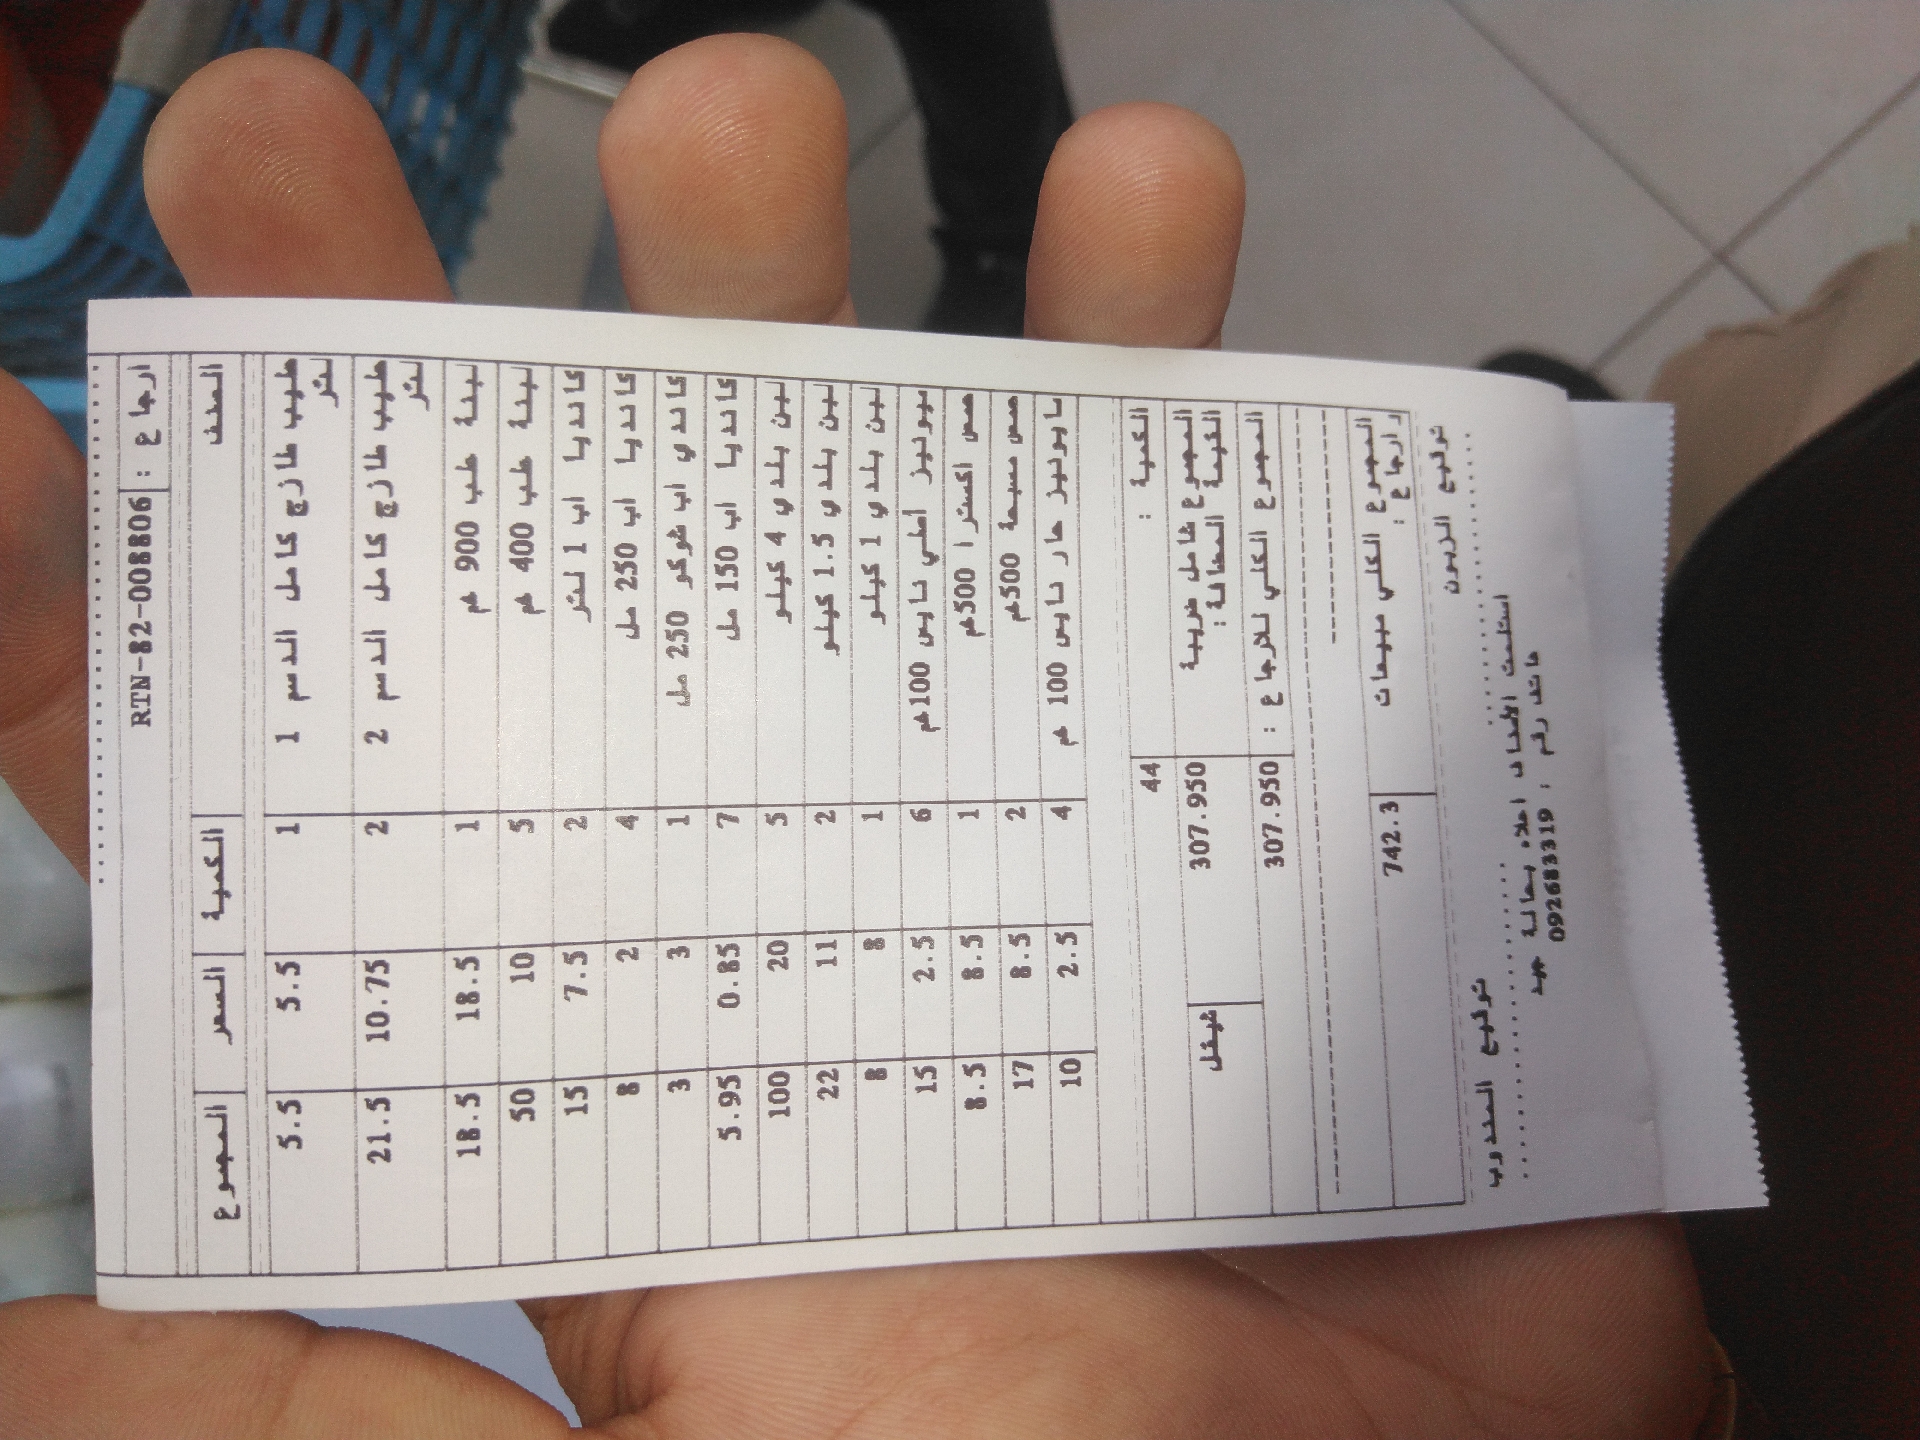 ارجاع : RTN-82-008806
الصنف الكمية السعر المجموع
حليب طازج كامل الدسم 1 لتر 1 5.5 5.5
حليب طازج كامل الدسم 2 لتر 2 10.75 21.5
لبنة علب 900 غم 1 18.5 18.5
لبنة علب 400 غم 5 10 50
كانديا اب 1 لتر 2 7.5 15
كانديا اب 250 مل 4 2 8
كاندي اب شوكو 250 مل 1 3 3
كانديا اب 150 مل 7 0.85 5.95
لبن بلدي 4 كيلو 5 20 100
لبن بلدي 1.5 كيلو 2 11 22
لبن بلدي 1 كيلو 1 8 8
ميونيز أصلي نايس 100غم 6 2.5 15
حمص اكسترا 500غم 1 8.5 8.5
حمص مسبحة 500غم 2 8.5 17
مايونيز حار نايس 100 غم 4 2.5 10
الكمية : 44
المجموع شامل ضريبة القيمة المضافة : 307.950 شيقل
المجموع الكلي للارجاع : 307.950
المجموع الكلي مبيعات و ارجاع : 742.3
توقيع الزبون
توقيع المندوب
استلمت الأصناف اعلاه بحالة جيد
هاتف رقم : 092683319